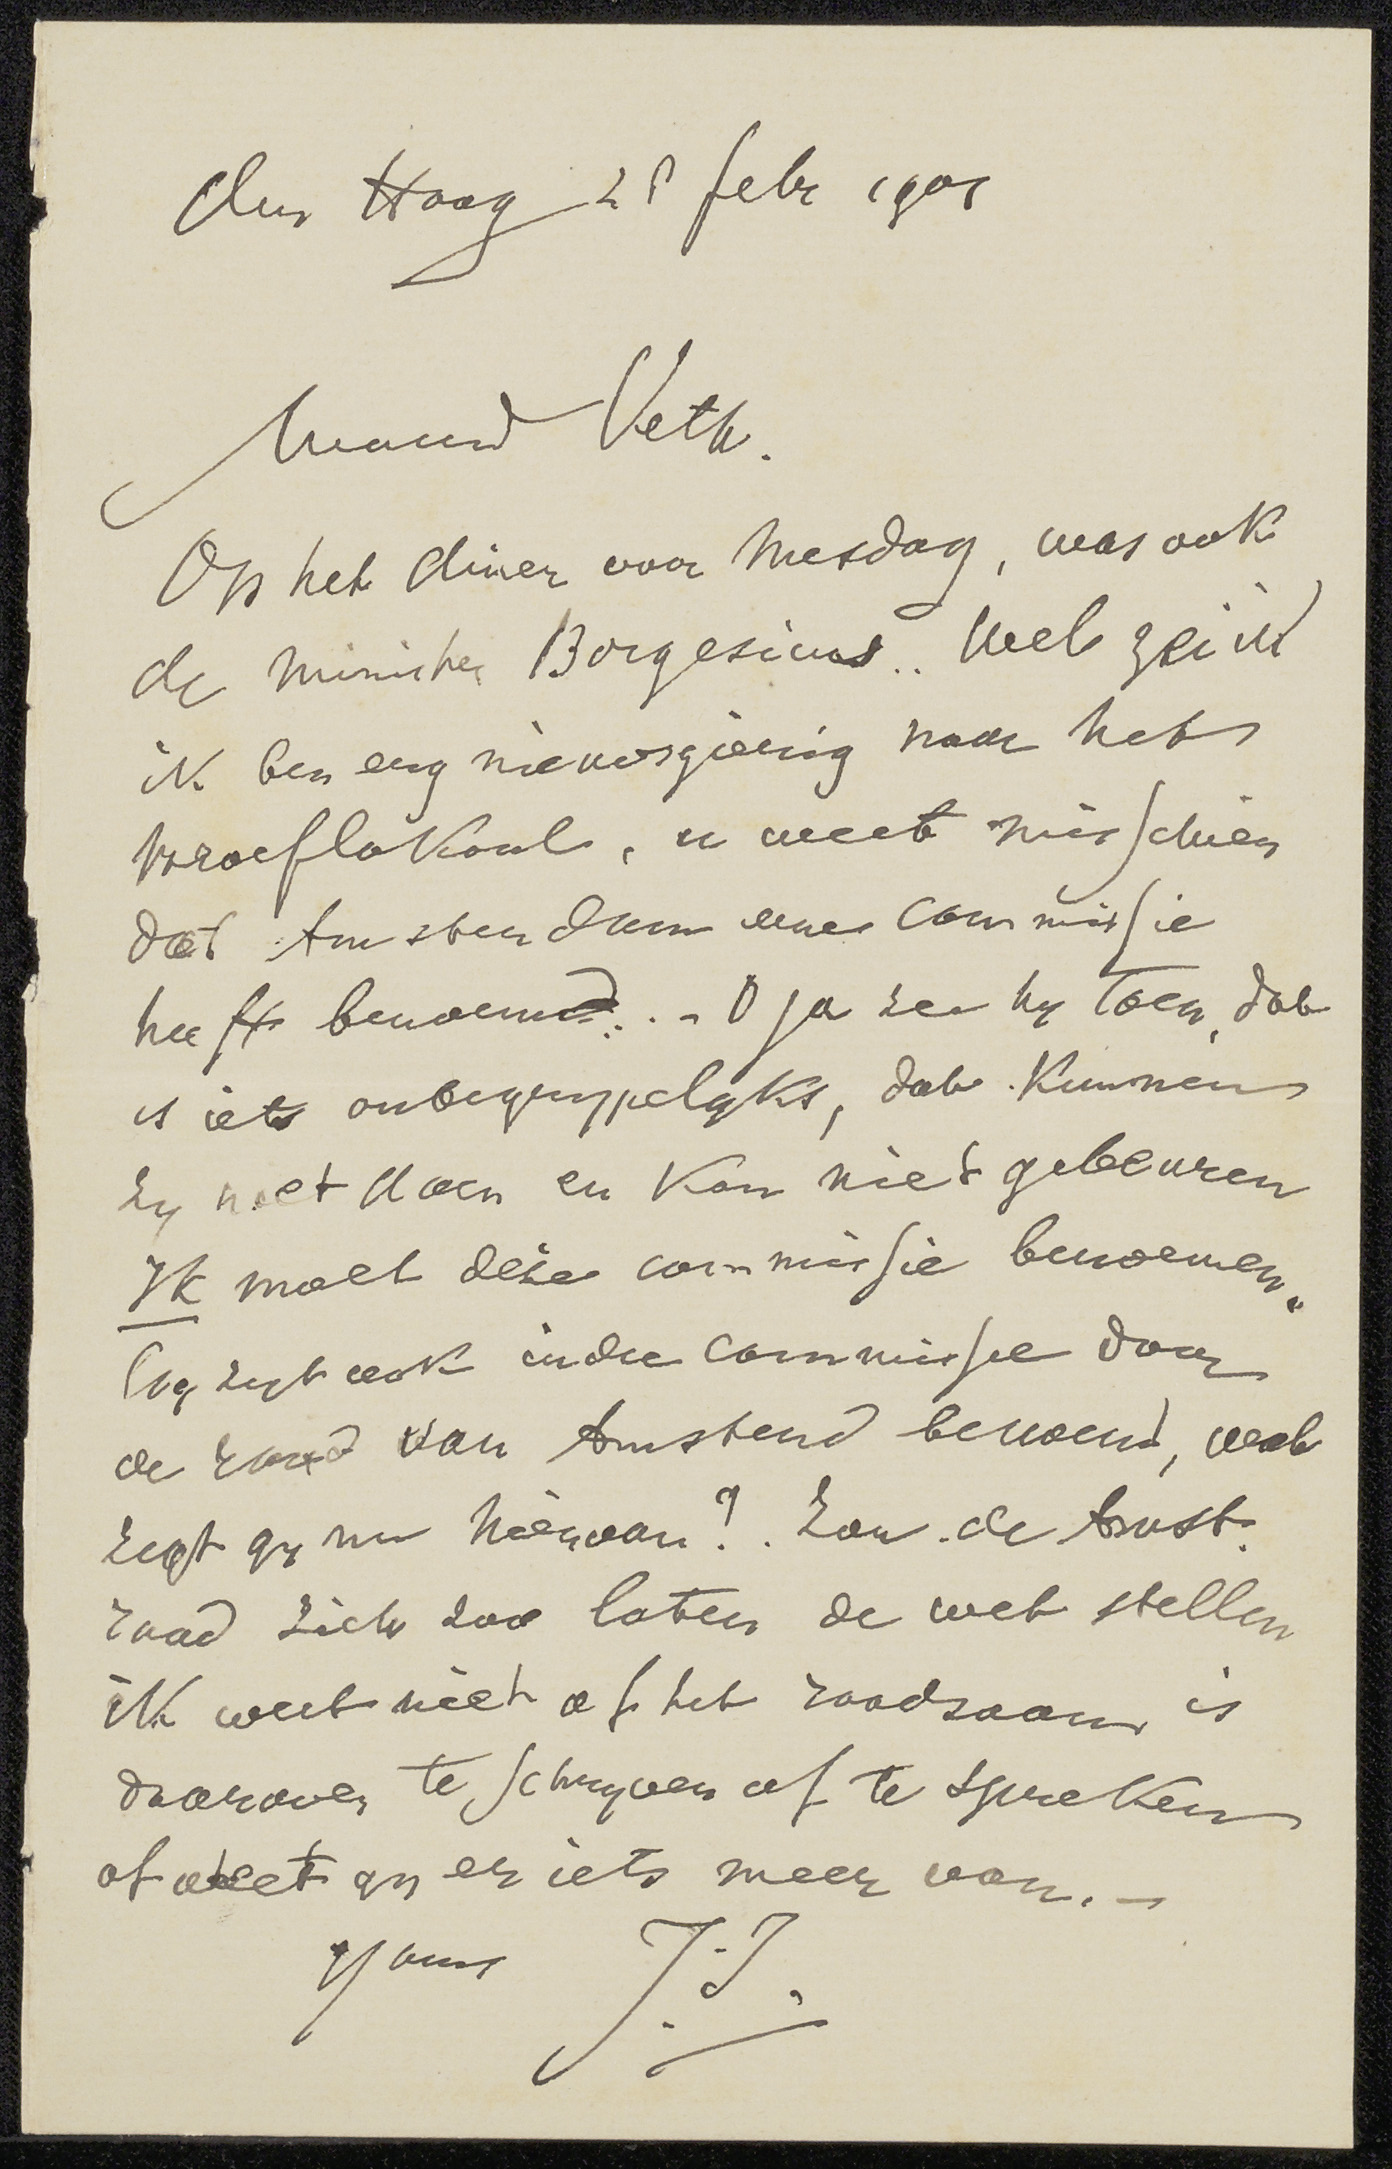 den Haag 28 febr 1901
Waarde Veth.
Op het diner voor Mesdag, was ook
de minister Borgesius.. Wel zei ik
ik ben erg nieuwsgierig naar het
proeflokaal, u weet misschien
dat Amsterdam eene commissie
heeft benoemd... – O ja zei hy toen, dat
is iets onbegrypelyks, dat kunnen
zy niet doen en kan niet gebeuren
Ik moet deze commissie benoemen."
Gy zyt ook in die commissie door
de raad van Amsterd benoemd, wat
zegt gy nu hiervan?. Zou de Amst.
raad zich zoo laten de wet stellen
ik weet niet of het raadzaam is
daarover te schryven of te spreken
of weet gy er iets meer van. –
Yours J.J.